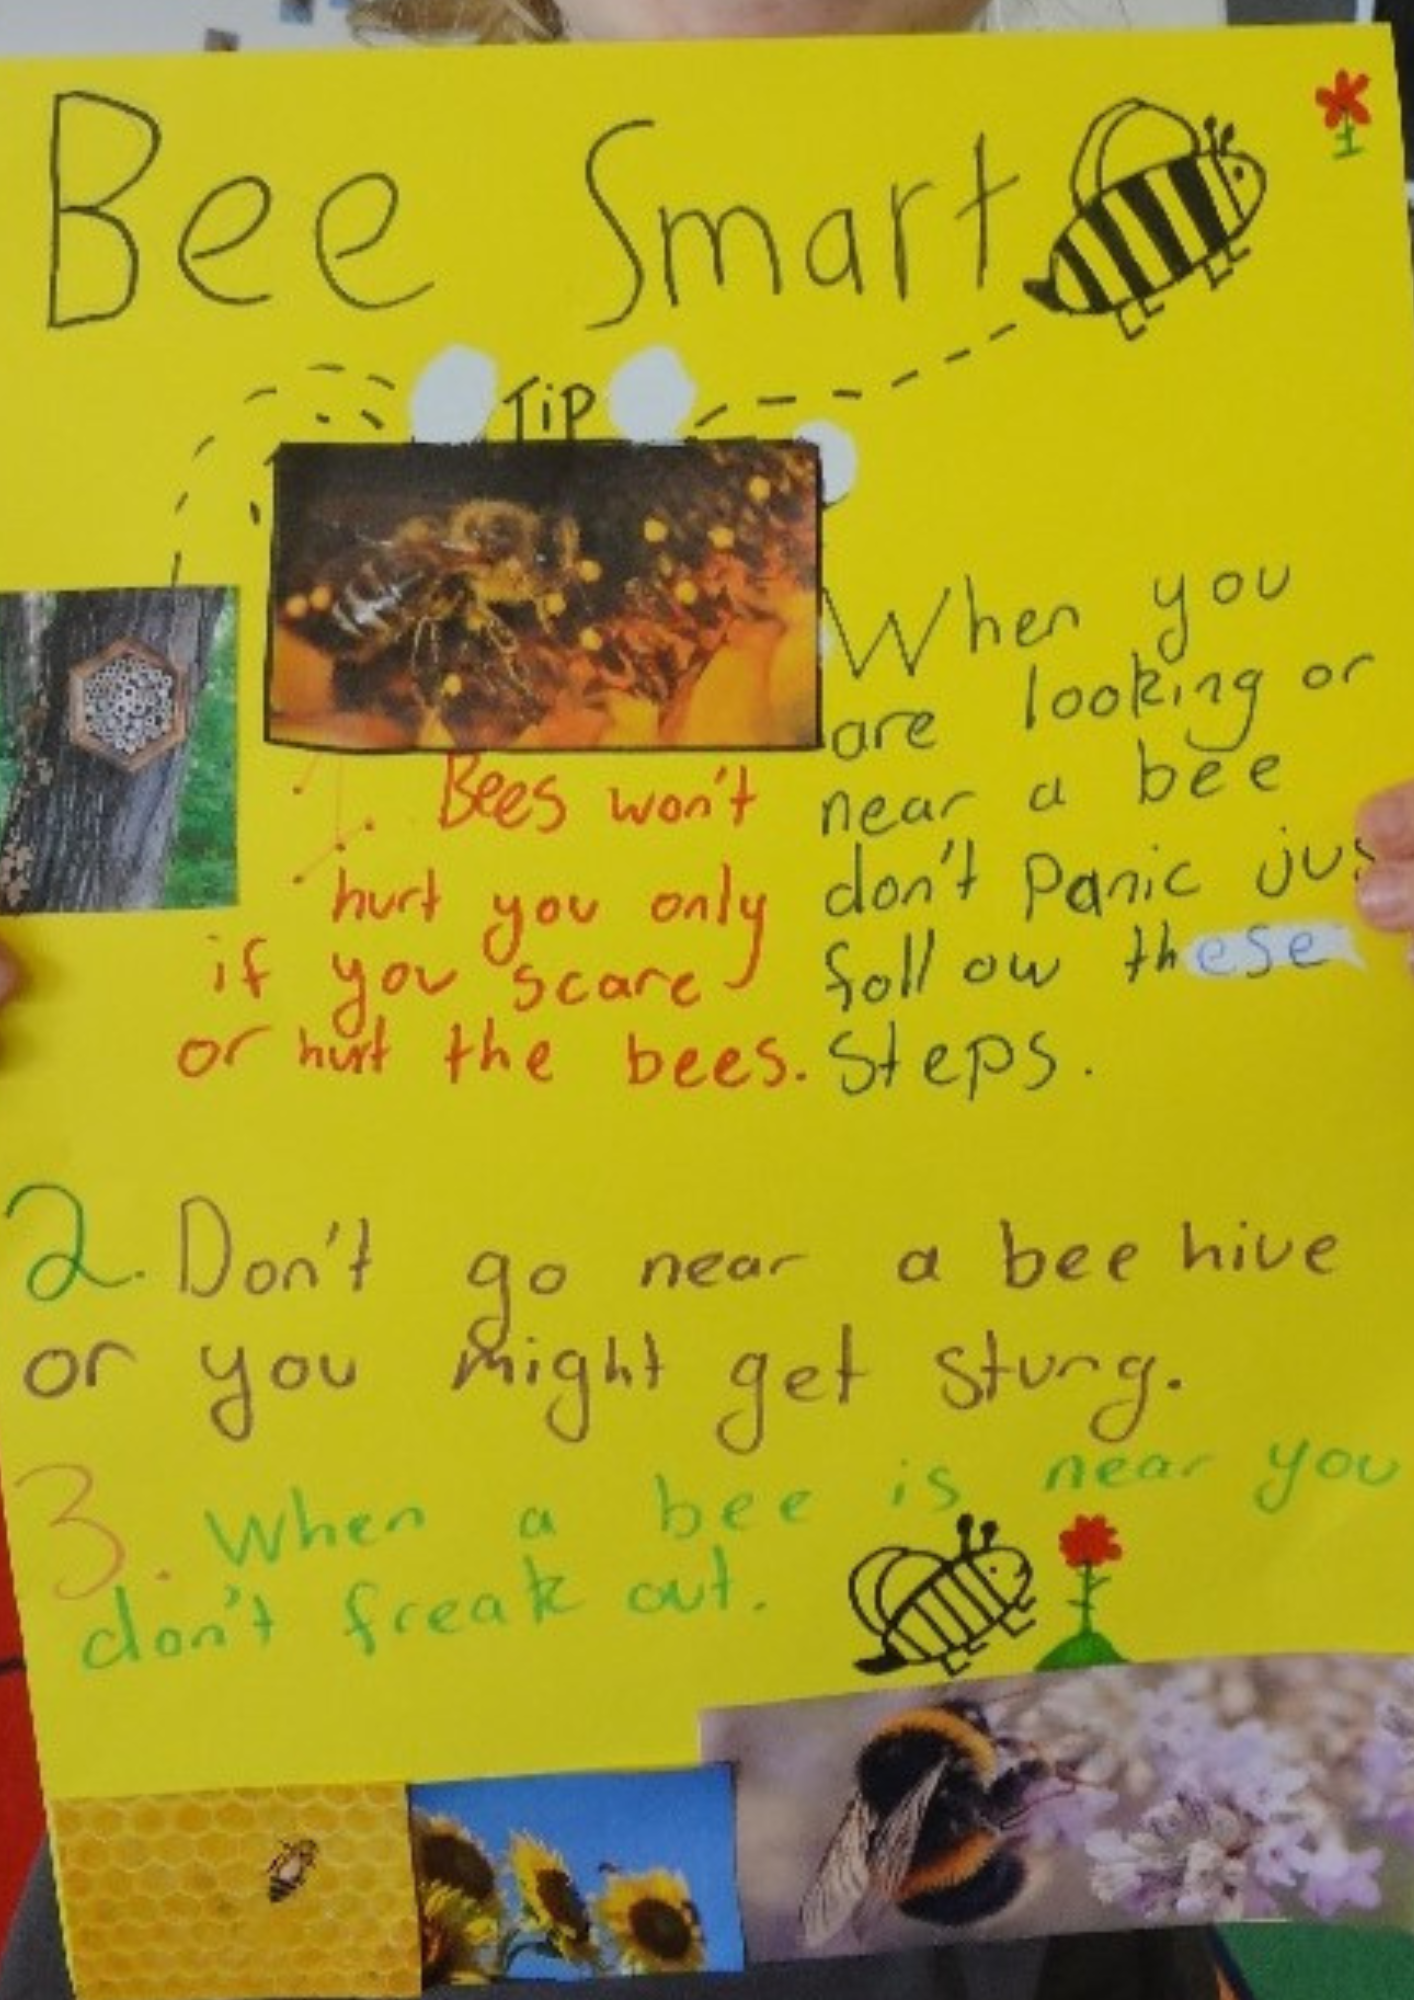 Bee Smart
Tip
Bees won't
hurt you only
if you scare
or hurt the bees.
When you
are looking or
near a bee
don't panic jus
follow these
steps.
2. Don't go near a bee hive
or you might get stung.
3. When a bee is near you
don't freak out.